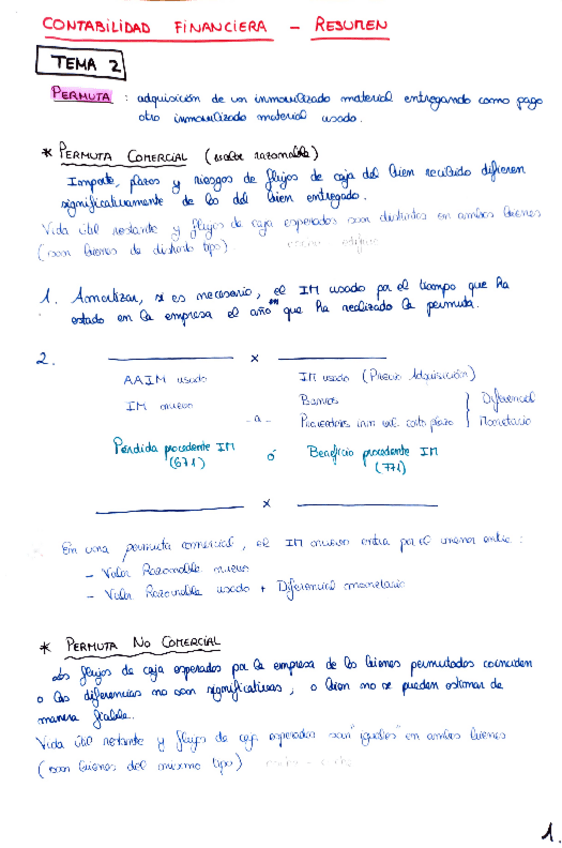 CONTABILIDAD FINANCIERA - RESUMEN
TEMA 2
PERMUTA : adquisición de un inmovilizado material entregando como pago
otro inmovilizado material usado.
* PERMUTA COMERCIAL (valor razonable)
Importe, plazos y riesgos de flujos de caja del bien recibido difieren
significativamente de los del bien entregado.
Vida útil restante y flujos de caja esperados son distintos en ambos bienes
(son bienes de distinto tipo).
1. Amortizar, si es necesario, el IM usado por el tiempo que ha
estado en la empresa el año en que ha realizado la permuta.
2. x
AAIM usado IM usado (Precio Adquisición)
IM nuevo Bancos } Diferencial
- a - Proveedores inm. val. corto plazo } Monetario
Pérdida procedente IM ó Beneficio procedente IM
(671) (771)
x
En una permuta comercial, el IM nuevo entra por el menor entre :
- Valor Razonable nuevo
- Valor Razonable usado + Diferencial monetario
* PERMUTA NO COMERCIAL
Los flujos de caja esperados por la empresa de los bienes permutados coinciden
o las diferencias no son significativas, o bien no se pueden estimar de
manera fiable.
Vida útil restante y flujos de caja esperados son "iguales" en ambos bienes
(son bienes del mismo tipo)
1.